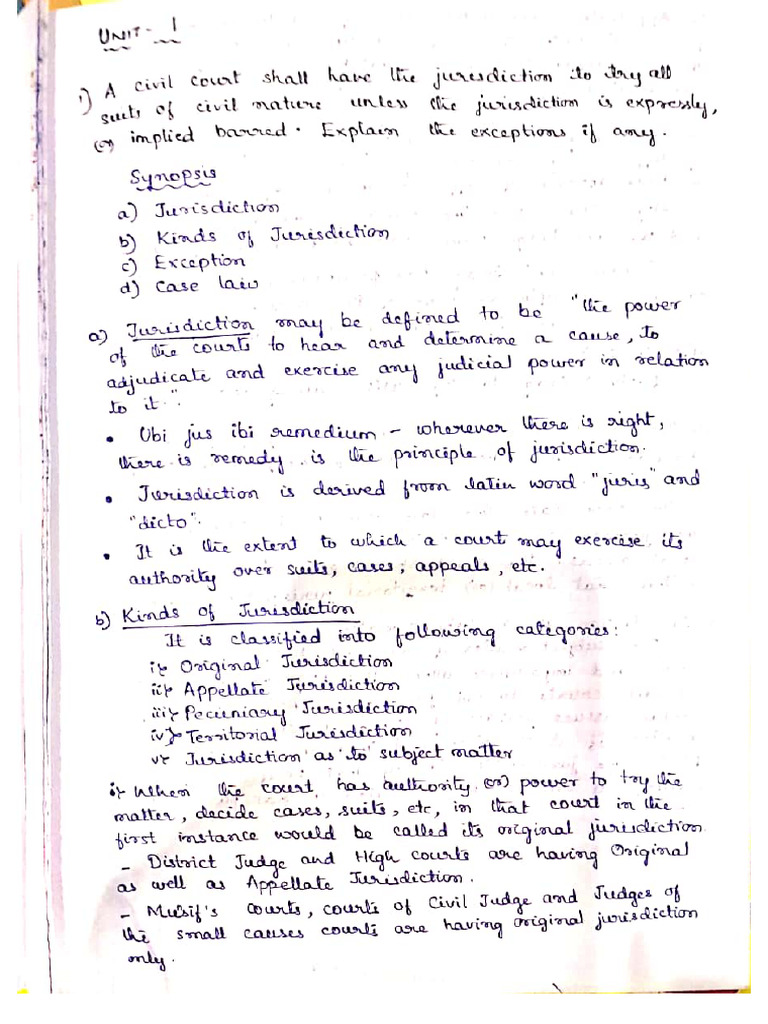 UNIT - 1
1) A civil court shall have the jurisdiction to try all
suits of civil nature unless the jurisdiction is expressly,
(or) implied barred. Explain the exceptions if any.
Synopsis
a) Jurisdiction
b) Kinds of Jurisdiction
c) Exception
d) Case law
a) Jurisdiction may be defined to be "the power
of the courts to hear and determine a cause, to
adjudicate and exercise any judicial power in relation
to it".
• Ubi jus ibi remedium - wherever there is right,
there is remedy is the principle of jurisdiction.
• Jurisdiction is derived from latin word "juris" and
"dicto".
• It is the extent to which a court may exercise its
authority over suits, cases, appeals, etc.
b) Kinds of Jurisdiction
It is classified into following categories:
i) Original Jurisdiction
ii) Appellate Jurisdiction
iii) Pecuniary Jurisdiction
iv) Territorial Jurisdiction
v) Jurisdiction as to subject matter
i) When the court has authority (or) power to try the
matter, decide cases, suits, etc, in that court in the
first instance would be called its original jurisdiction
- District Judge and High courts are having Original
as well as Appellate Jurisdiction.
- Munsif's courts, courts of Civil Judge and Judges of
the small causes courts are having original jurisdiction
only.